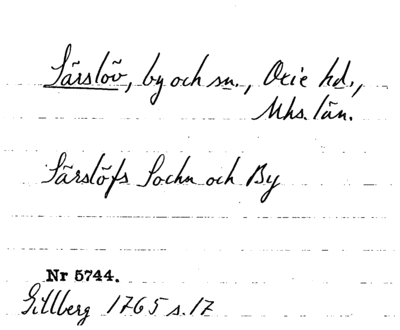 Särslöv, by och sn., Oxie hd.,
Mhs. län.
Särslöfs Sochn och By
Nr 5744.
Gillberg 1765 s. 17